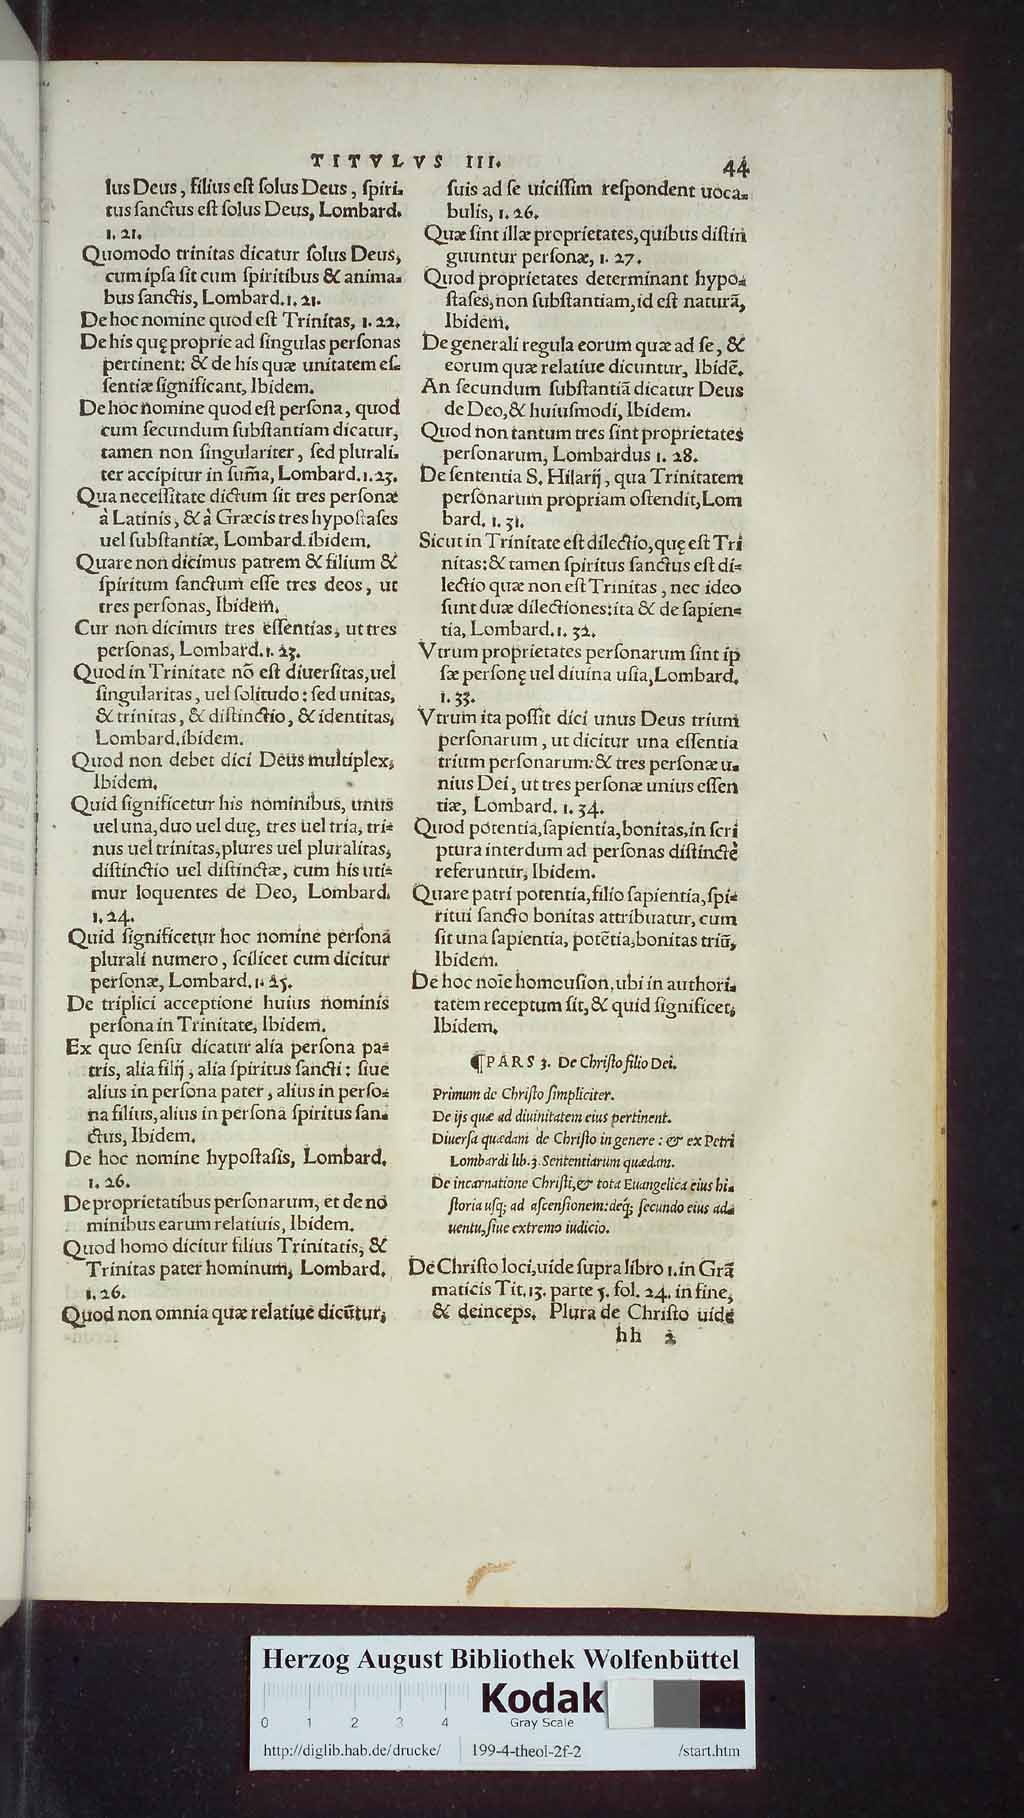 TITVLVS III.
44
lus Deus, filius est solus Deus, spiri-
tus sanctus est solus Deus, Lombard.
1. 21.
Quomodo trinitas dicatur solus Deus,
cum ipsa sit cum spiritibus & anima-
bus sanctis, Lombard. 1. 21.
De hoc nomine quod est Trinitas, 1. 22.
De his quę proprie ad singulas personas
pertinent: & de his quæ unitatem es-
sentiæ significant, Ibidem.
De hoc nomine quod est persona, quod
cum secundum substantiam dicatur,
tamen non singulariter, sed plurali-
ter accipitur in sum̄a, Lombard. 1. 23.
Qua necessitate dictum sit tres personæ
à Latinis, & à Græcis tres hypostases
uel substantiæ, Lombard. ibidem.
Quare non dicimus patrem & filium &
spiritum sanctum esse tres deos, ut
tres personas, Ibidem.
Cur non dicimus tres essentias, ut tres
personas, Lombard. 1. 23.
Quod in Trinitate nō est diuersitas, uel
singularitas, uel solitudo: sed unitas,
& trinitas, & distinctio, & identitas,
Lombard. ibidem.
Quod non debet dici Deus multiplex,
Ibidem.
Quid significetur his nominibus, unus
uel una, duo uel duę, tres uel tria, tri-
nus uel trinitas, plures uel pluralitas,
distinctio uel distinctæ, cum his uti-
mur loquentes de Deo, Lombard.
1. 24.
Quid significetur hoc nomine persona
plurali numero, scilicet cum dicitur
personæ, Lombard. 1. 25.
De triplici acceptione huius nominis
persona in Trinitate, Ibidem.
Ex quo sensu dicatur alia persona pa-
tris, alia filij, alia spiritus sancti: siue
alius in persona pater, alius in perso-
na filius, alius in persona spiritus san-
ctus, Ibidem.
De hoc nomine hypostasis, Lombard.
1. 26.
De proprietatibus personarum, et de no
minibus earum relatiuis, Ibidem.
Quod homo dicitur filius Trinitatis, &
Trinitas pater hominum, Lombard.
1. 26.
Quod non omnia quæ relatiue dicūtur,
suis ad se uicissim respondent uoca-
bulis, 1. 26.
Quæ sint illæ proprietates, quibus distin
guuntur personæ, 1. 27.
Quod proprietates determinant hypo-
stases, non substantiam, id est naturā,
Ibidem.
De generali regula eorum quæ ad se, &
eorum quæ relatiue dicuntur, Ibidē.
An secundum substantiā dicatur Deus
de Deo, & huiusmodi, Ibidem.
Quod non tantum tres sint proprietates
personarum, Lombardus 1. 28.
De sententia S. Hilarij, qua Trinitatem
personarum propriam ostendit, Lom
bard. 1. 31.
Sicut in Trinitate est dilectio, quę est Tri
nitas: & tamen spiritus sanctus est di-
lectio quæ non est Trinitas, nec ideo
sunt duæ dilectiones: ita & de sapien-
tia, Lombard. 1. 32.
Vtrum proprietates personarum sint ip
sæ personę uel diuina usia, Lombard.
1. 33.
Vtrum ita possit dici unus Deus trium
personarum, ut dicitur una essentia
trium personarum: & tres personæ u-
nius Dei, ut tres personæ unius essen
tiæ, Lombard. 1. 34.
Quod potentia, sapientia, bonitas, in scri
ptura interdum ad personas distinctè
referuntur, Ibidem.
Quare patri potentia, filio sapientia, spi-
ritui sancto bonitas attribuatur, cum
sit una sapientia, potētia, bonitas triū,
Ibidem.
De hoc noīe homousion, ubi in authori-
tatem receptum sit, & quid significet,
Ibidem.
¶ PARS 3. De Christo filio Dei.
Primum de Christo simpliciter.
De ijs quæ ad diuinitatem eius pertinent.
Diuersa quædam de Christo in genere: & ex Petri
Lombardi lib. 3. Sententiarum quædam.
De incarnatione Christi, & tota Euangelica eius hi-
storia usq; ad ascensionem: deq; secundo eius ad-
uentu, siue extremo iudicio.
De Christo loci, uide supra libro 1. in Grā
maticis Tit. 13. parte 5. fol. 24. in fine,
& deinceps. Plura de Christo uide
hh 2
Herzog August Bibliothek Wolfenbüttel
Kodak
Gray Scale
0 1 2 3 4
http://diglib.hab.de/drucke/ 199-4-theol-2f-2 /start.htm